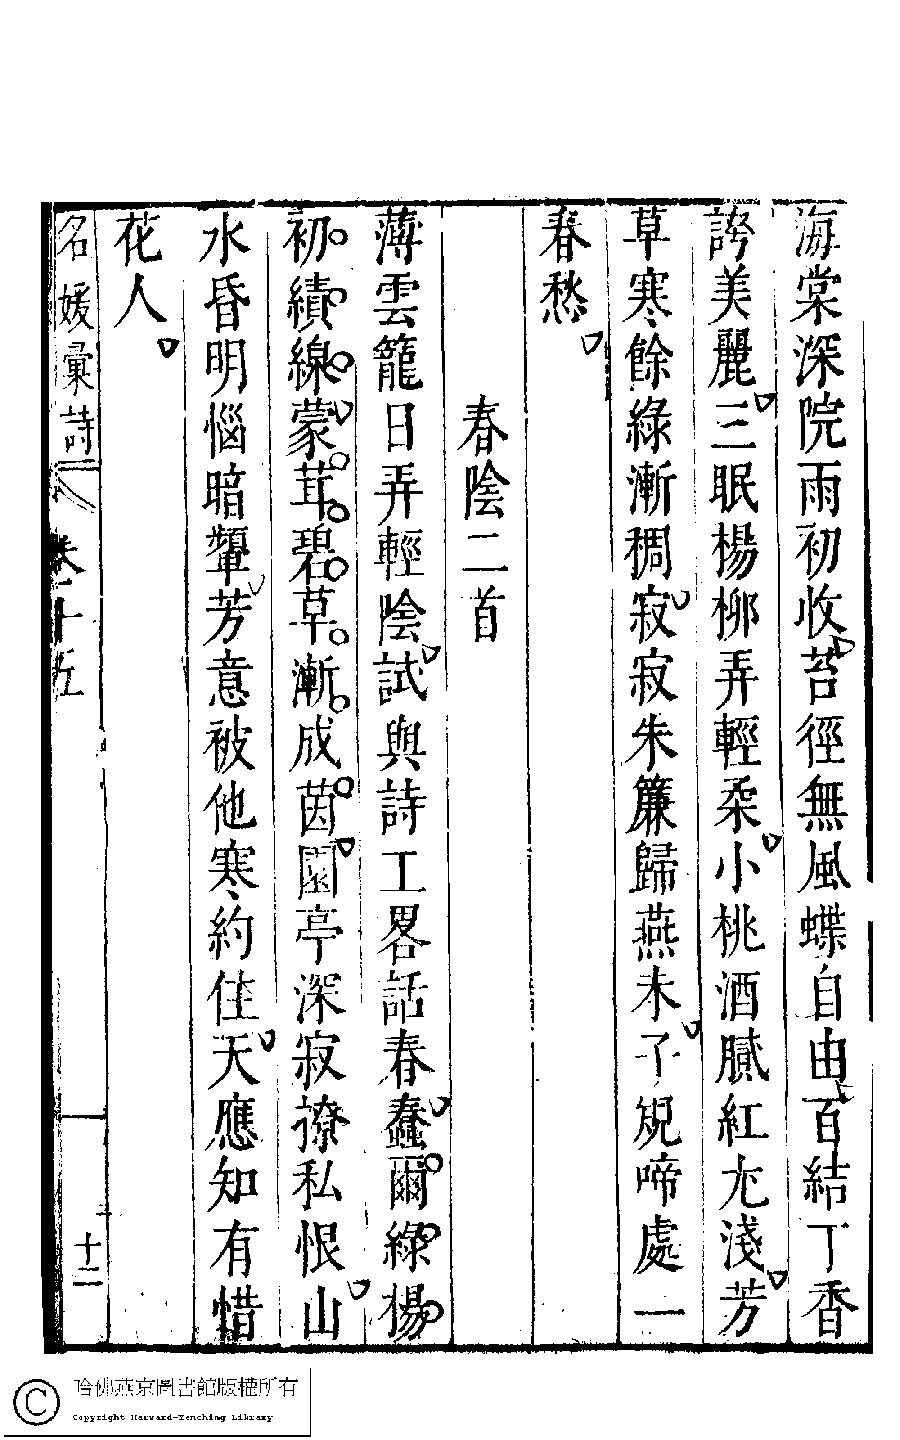 海棠深院雨初收苔徑無風蝶自由百結丁香
誇美麗三眠楊柳弄輕柔小桃酒膩紅尤淺芳
草寒餘綠漸稠寂寂朱簾歸燕未子規啼處一
春愁
春陰二首
薄雲籠日弄輕陰試與詩工畧話春蠶爾綠楊
初續線蒙茸碧草漸成茵園亭深寂撩私恨山
水昏明惱暗顰芳意被他寒約住天應知有惜
花人
名媛彙詩 卷十五 十二
哈佛燕京圖書館版權所有
Copyright Harvard-Yenching Library